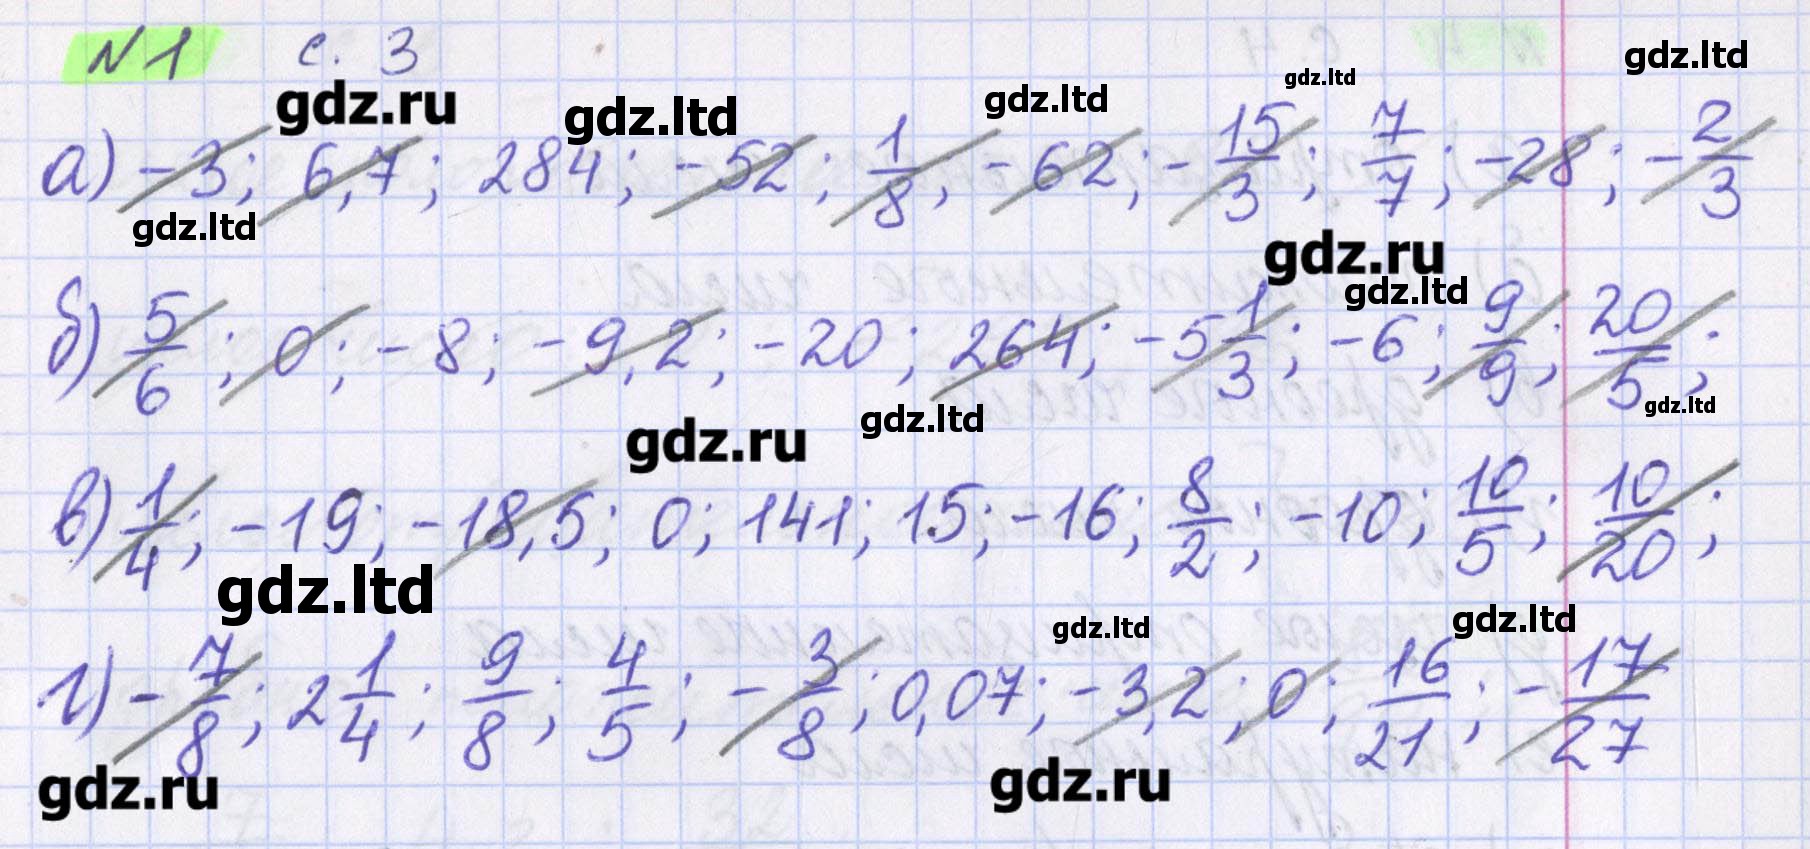 №1 с. 3
gdz.ltd
gdz.ltd
gdz.ru gdz.ltd gdz.ltd
а) -3; 6,7; 284; -52; 1/8, -62; -15/3; 7/7; -28; -2/3
gdz.ltd
gdz.ru
gdz.ltd
б) 5/6; 0; -8; -9,2; -20; 264; -5 1/3; -6; 9/9; 20/5;
gdz.ru gdz.ltd gdz.ltd
в) 1/4; -19; -18,5; 0; 141; 15; -16; 8/2; -10; 10/5; 10/20;
gdz.ltd gdz.ltd gdz.ltd
г) -7/8; 2 1/4; 9/8; 4/5; -3/8; 0,07; -3,2; 0; 16/21; -17/27
gdz.ru gdz.ru